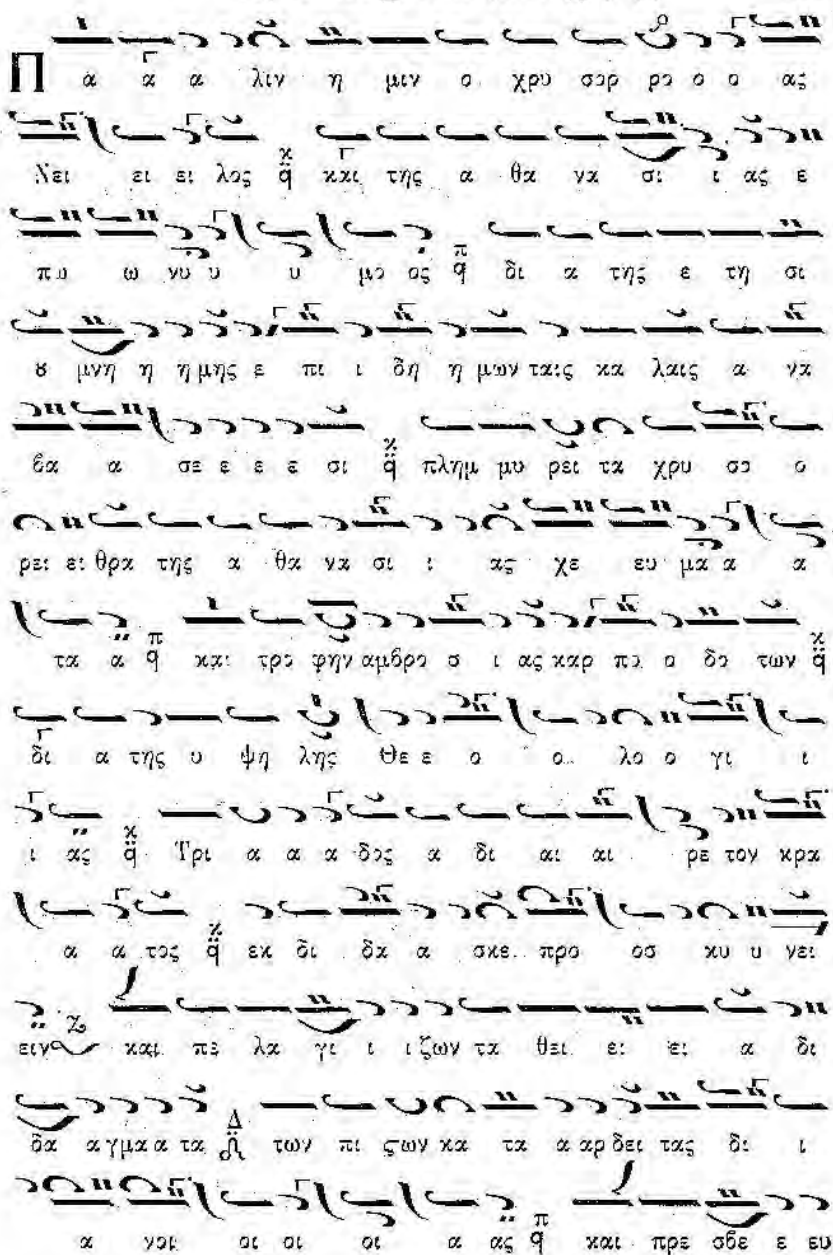 Π α α α λιν η μιν ο χρυ σορ ρο ο ο ας
Νει ει ει λος και της α θα να σι ι ας ε
πω ω νυ υ υ μο ος δι α της ε τη σι
ȣ μνη η η μης ε πι ι δη η μων ταις κα λαις α να
βα α σε ε ε ε σι πλημ μυ ρει τα χρυ σο ο
ρει ει θρα της α θα να σι ι ας χε ευ μα α α
τα α και τρο φην αμβρο σ ι ας καρ πο ο δο των
δι α της υ ψη λης Θε ε ο ο λο ο γι ι
ι ας Τρι α α α δος α δι αι αι ρε τον κρα
α α τος εκ δι δα α σκε προ οσ κυ υ νει
ειν και πε λα γι ι ι ζων τα θει ει ει α δι
δα α γμα α τα των πι ςων κα τα α αρ δει τας δι ι
α νοι οι οι οι α ας και πρε σβε ε ευ